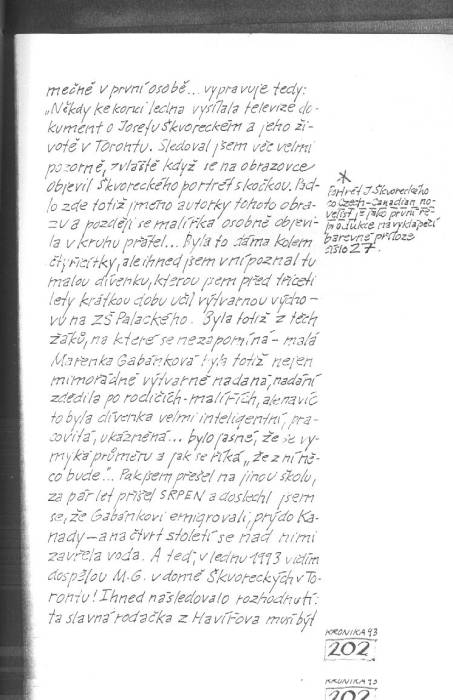 mečně v první osobě... vypravuje tedy:
„Někdy ke konci ledna vysílala televize do-
kument o Josefu Škvoreckém a jeho ži-
votě v Torontu. Sledoval jsem věc velmi
pozorně, zvláště když se na obrazovce
objevil Škvoreckého portrét s kočkou. Pad-
lo zde totiž jméno autorky tohoto obra-
zu a později se malířka osobně objevi-
la v kruhu přátel... Byla to dáma kolem
čtyřicítky, ale ihned jsem v ní poznal tu
malou dívenku, kterou jsem před třiceti
lety krátkou dobu učil výtvarnou výcho-
vu na ZŠ Palackého. Byla totiž z těch
žáků, na které se nezapomíná – malá
Mařenka Gabánková byla totiž nejen
mimořádně výtvarně nadaná, nadání
zdědila po rodičích-malířích, ale navíc
to byla dívenka velmi inteligentní, pra-
covitá, ukázněná... bylo jasné, že se vy-
myká průměru a jak se říká „že z ní ně-
co bude“... Pak jsem přešel na jinou školu,
za pár let přišel SRPEN a doslechl jsem
se, že Gabánkovi emigrovali, prý do Ka-
nady – a na čtvrt století se nad nimi
zavřela voda. A teď, v lednu 1993 vidím
dospělou M.G. v domě Škvoreckých v To-
rontu! Ihned následovalo rozhodnutí:
ta slavná rodačka z Havířova musí být
*
Portrét J. Škvoreckého
co Czech-Canadian no-
velist je jako první re-
produkce na vyklápěcí
barevné příloze
číslo 27.
KRONIKA 93
202
KRONIKA 93
202